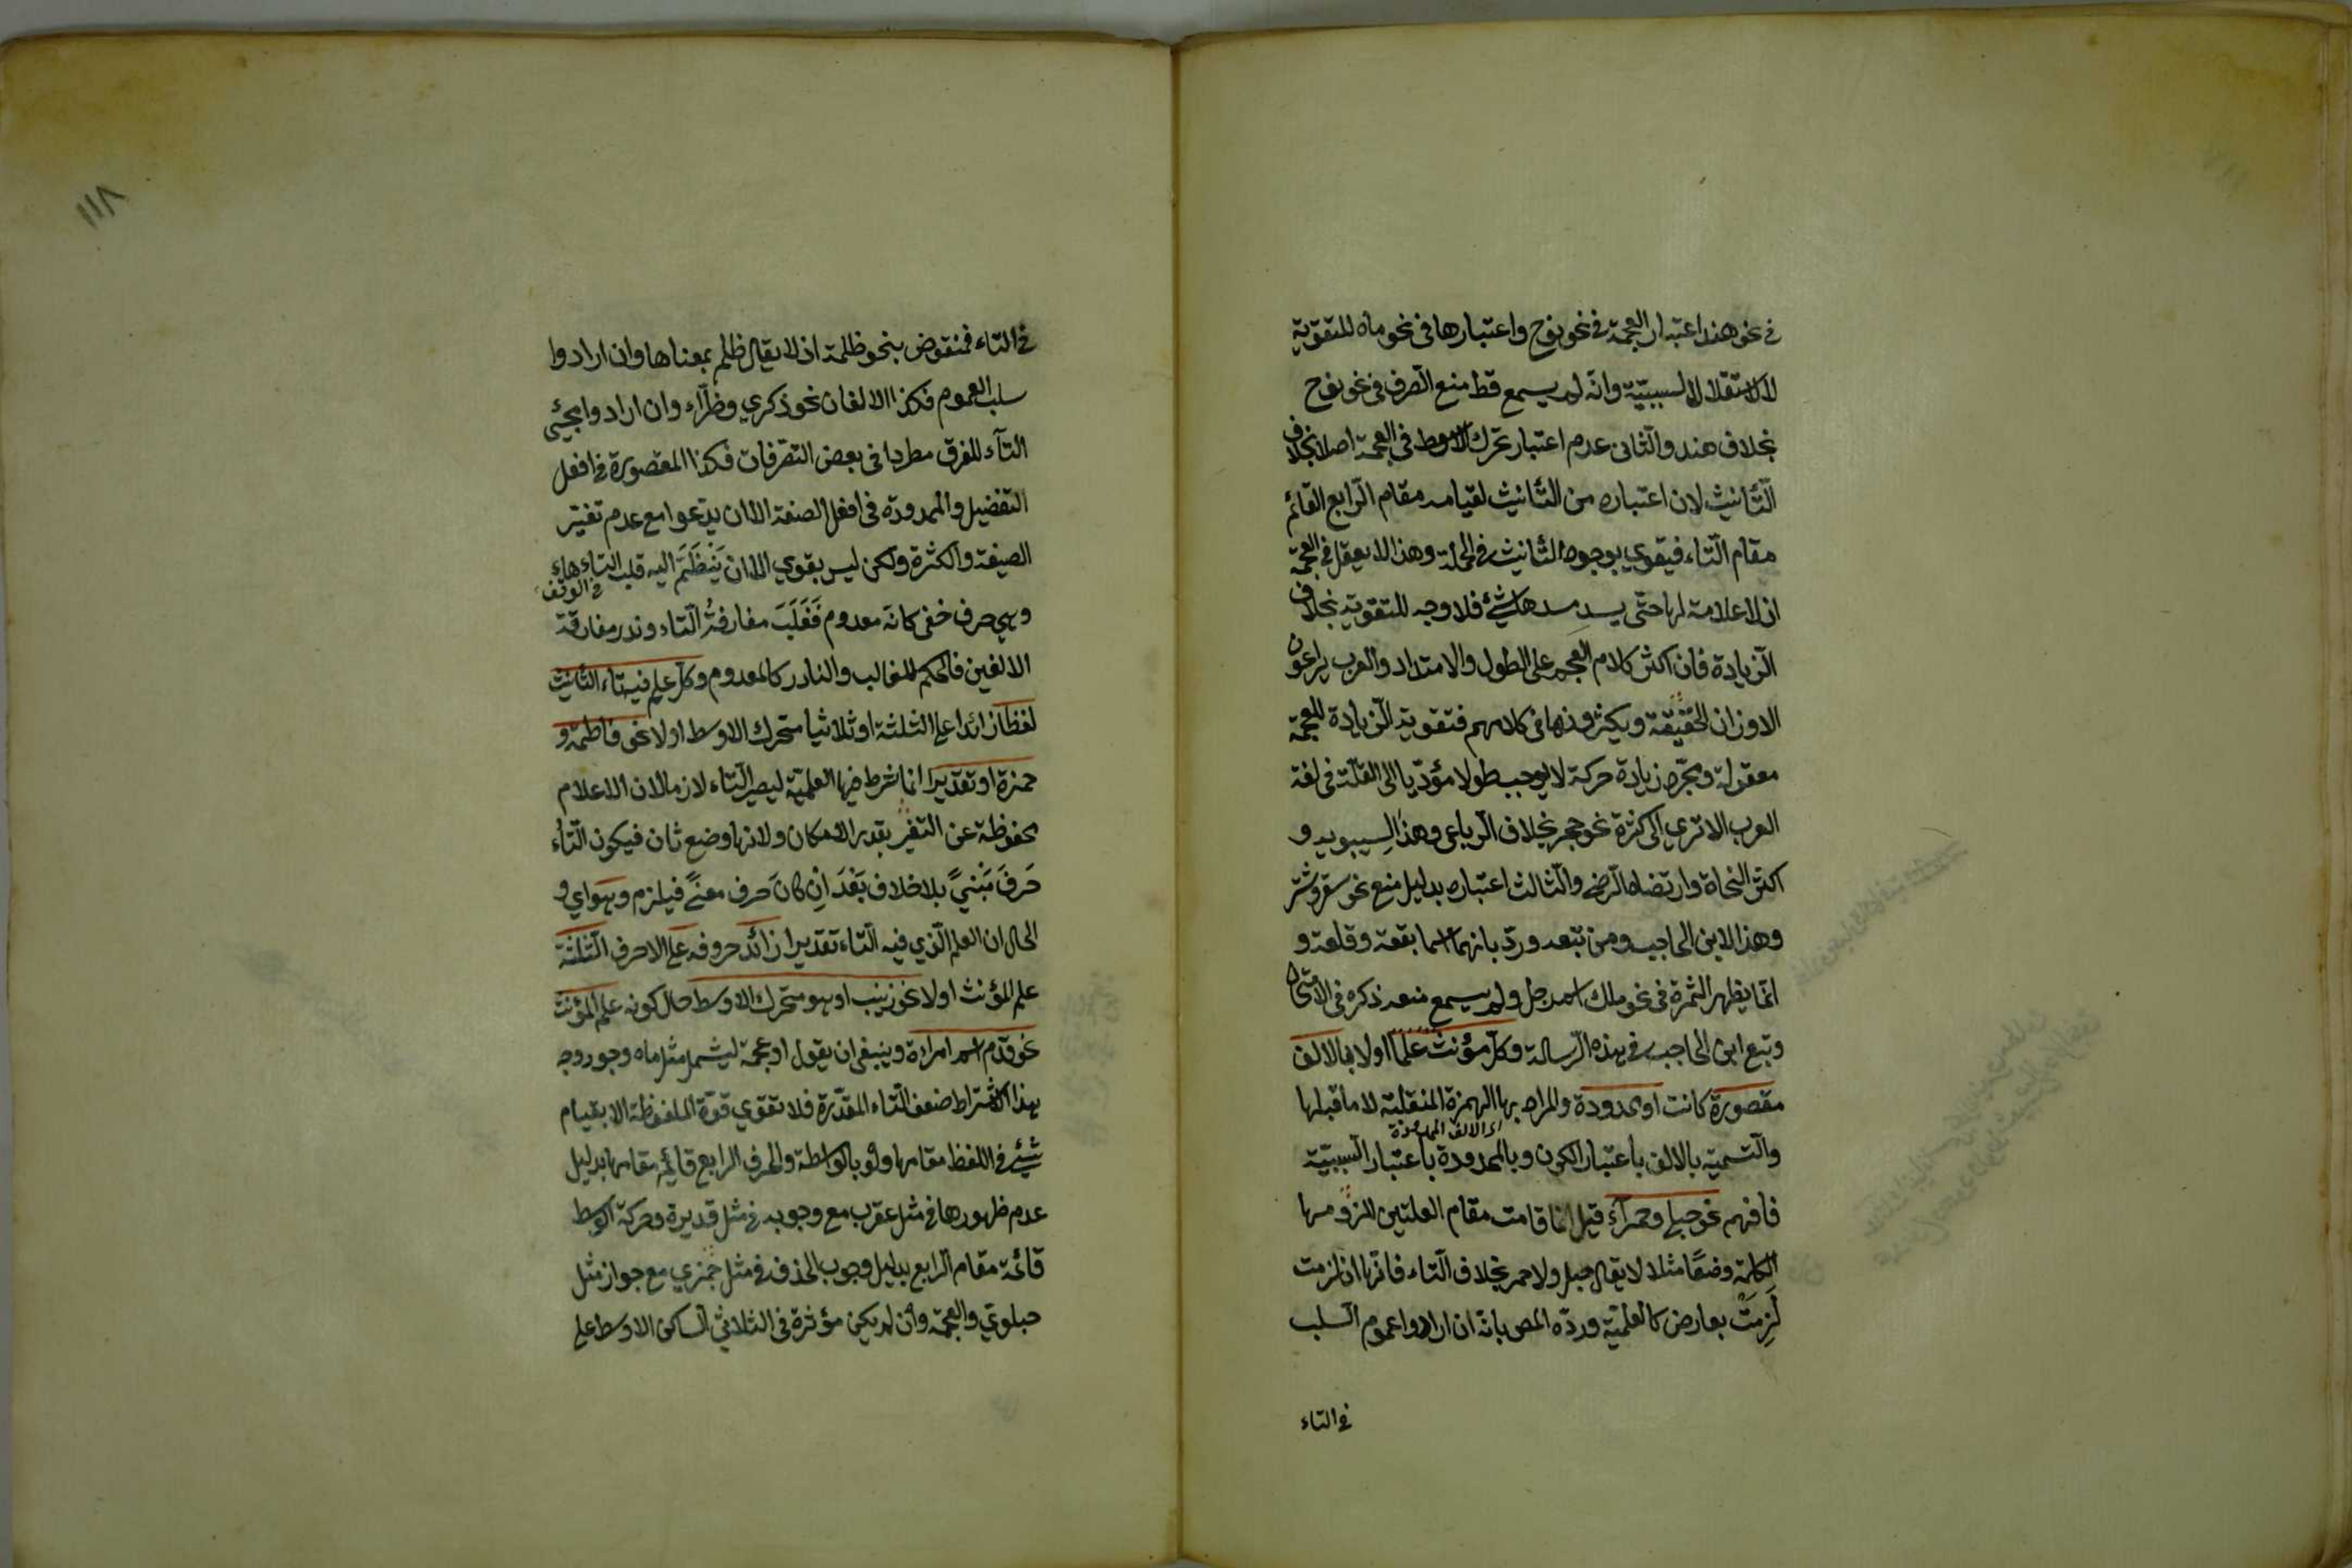 في نحو هند اعتبار العجمة في نحو نوح واعتبارها في نحو ماه للتقوية
لا لاستقلال السببية وانه لم يسمع قط منع الصرف في نحو نوح
بخلاف هند والثاني عدم اعتبار تحرك الاوسط في العجمة اصلا بخلاف
التأنيث لان اعتباره من التأنيث لقيامه مقام الرابع القائم
مقام التاء فيقوي بوجوه التأنيث في الجملة وهذا لا يعقل في العجمة
اذ لا علامة لها حتى يسد مسدها شئ فلا وجه للتقوية بخلاف
الزيادة فان اكثر كلام العجم على الطول والامتداد والعرب يراعون
الاوزان الخفيفة ويكثرونها في كلامهم فتقوية الزيادة للعجمة
معقولة ومجرد زيادة حركة لا يوجب طولا مؤديا الى القلة في لغة
العرب الا تري الى كثرة نحو حجر بخلاف الرباعى وهذا لسيبويه و
اكثر النحاة وارتضاه الرضى والثالث اعتباره بدليل منع نحو سقر وشتر
وهذا لابن الحاجب ومن تبعه وردّ بانهما اسما بقعة وقلعة و
انما يظهر الثمرة في نحو ملك اسم رجل ولم يسمع منعه ذكره في الامتحان
وتبع ابن الحاجب في هذه الرسالة وكل مؤنث علما اولا بالالف
مقصورة كانت او ممدودة والمراد بها الهمزة المنقلبة لا ما قبلها
اى الالف الممدودة
والتسمية بالالف باعتبار الكون وبالممدودة باعتبار السببية
فافهم نحو حبلى وحمراء قيل انما قامت مقام العلتين للزومها
الكلمة وضعًا مثلا لا يقال حبل ولا حمر بخلاف التاء فانها ان لزمت
لَزِمَتْ بعارض كالعلمية وردّه المص بانه ان ارادوا عموم السلب
في التاء
١١٨
في التاء فمنقوض بنحو ظلمة اذ لا يقال ظلم بمعناها وان ارادوا
سلب العموم فكذا الالفان نحو ذكري وان ارادوا مجئى
التاء للفرق مطردا في بعض التصرفات فكذا المقصورة في افعل
التفضيل والممدودة في افعل الصفة الا ان يدعوا مع عدم تغيّر
الصيغة والكثرة ولكن ليس بقوي الا ان يَنْظَمَّ اليه قلب التاء هاء
في الوقف
وهي حرف خفى كانه معدوم فَغَلَبَ مفارقةُ التاء وندر مفارقة
الالفين فالحكم للغالب والنادر كالمعدوم وكل علم فيه تاء التأنيث
لفظا زائدا على الثلثة او ثلاثيا متحرك الاوسط اولا نحو فاطمة و
حمزة او تقديرا انما شرط فيها العلمية ليصير التاء لازما لان الاعلام
محفوظة عن التغير بقدر الامكان ولانها وضع ثان فيكون التاء
حَرفَ مَبْنيً بلا خلاف بَعْدَ اِن كانَ حرف معنًى فيلزم وهو اي و
الحال ان العلم الذي فيه التاء تقديرا زائد حروفه على الاحرف الثلثة
علم المؤنث اولا نحو زينب او هو متحرك الاوسط حال كونه علم المؤنث
نحو قدم اسم امراءة وينبغي ان يقول او عجمة ليشمل مثل ماه وجور وجه
هذا الاشتراط ضعف التاء المقدرة فلا تقوي قوة الملفوظة الا بقيام
شئ في اللفظ مقامها ولو بالواسطة والحرف الرابع قائم مقامها بدليل
عدم ظهورها في مثل عقرب مع وجوبه في مثل قديرة وحركة الاوسط
قائمة مقام الرابع بدليل وجوب الحذف في مثل جمزي مع جواز مثل
حبلوي والعجمة وان لم يكن مؤثرة في الثلاثى الساكن الاوسط على